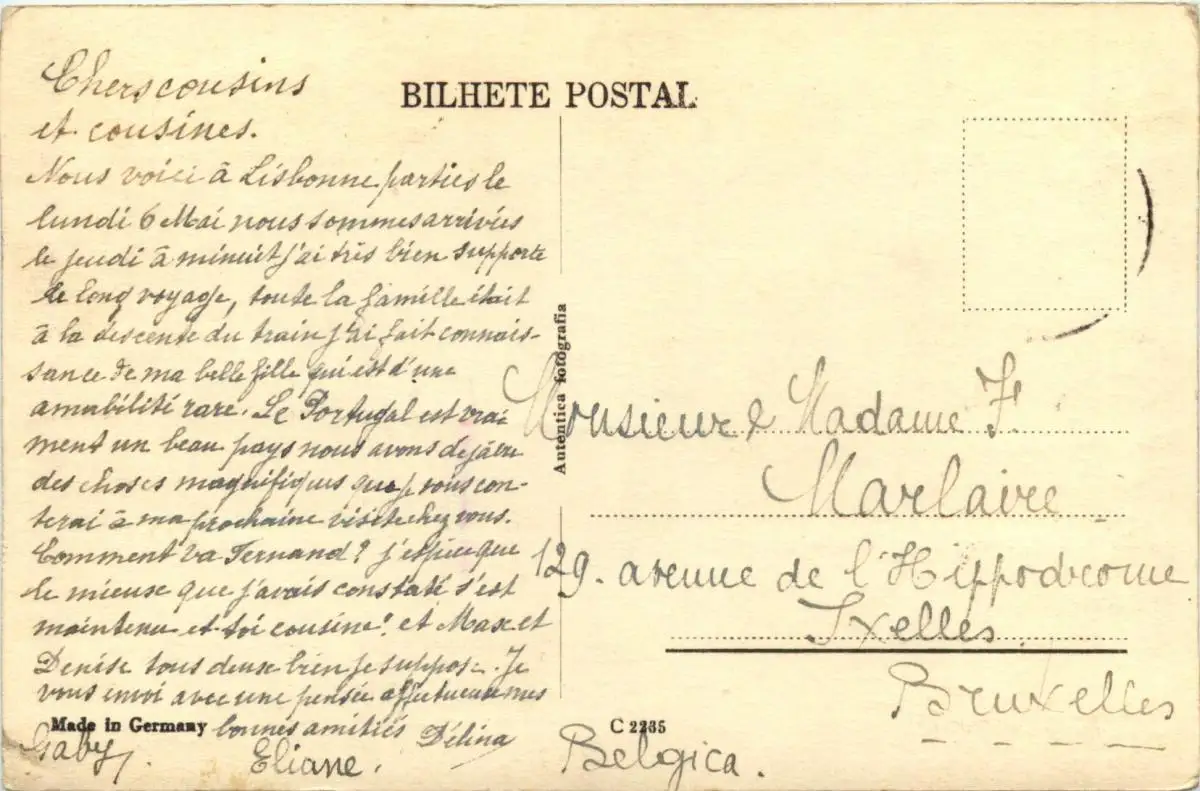 Chers cousins
et cousines.
Nous voici à Lisbonne parties le
lundi 6 Mai nous sommes arrivées
le jeudi à minuit j'ai très bien supporte
le long voyage, toute la famille était
à la descente du train j'ai fait connais-
sance de ma belle fille qui est d'une
amabilité rare. Le Portugal est vrai
ment un beau pays nous avons déjà vu
des choses magnifiques que je vous con-
terai à ma prochaine visite chez vous.
Comment va Fernand? j'espère que
le mieux que j'avais constaté s'est
maintenu et toi cousine! et Max et
Denise tous deux bien je suppose. Je
vous envoi avec une pensée affectueuse mes
bonnes amitiés Délina
Gaby. Eliane.
Made in Germany
BILHETE POSTAL
Autentica fotografia
C 2235
Monsieur & Madame F.
Marlaire
129. avenue de l'Hippodrome
Ixelles
Bruxelles
Belgica.